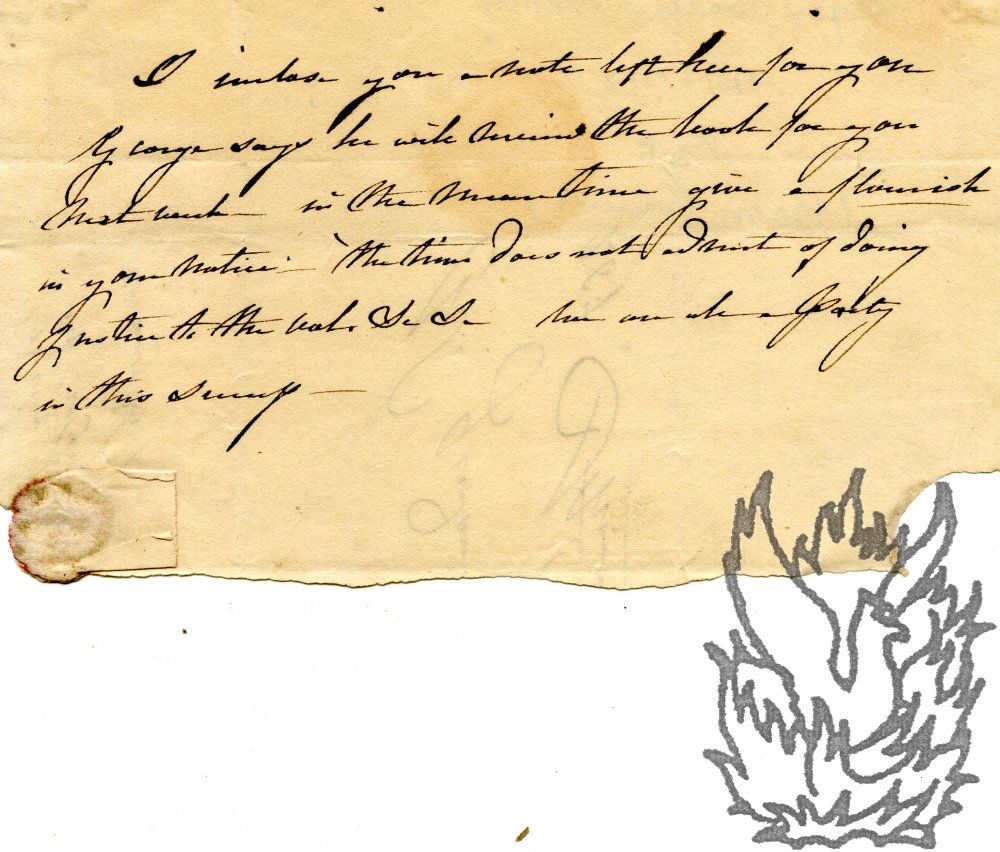 I inclose you a note left here for you
George says he will review the book for you
Next week — in the mean time give a flourish
in your notice — "the time does not admit of doing
Justice to the book &c &c we are all a Party
in this